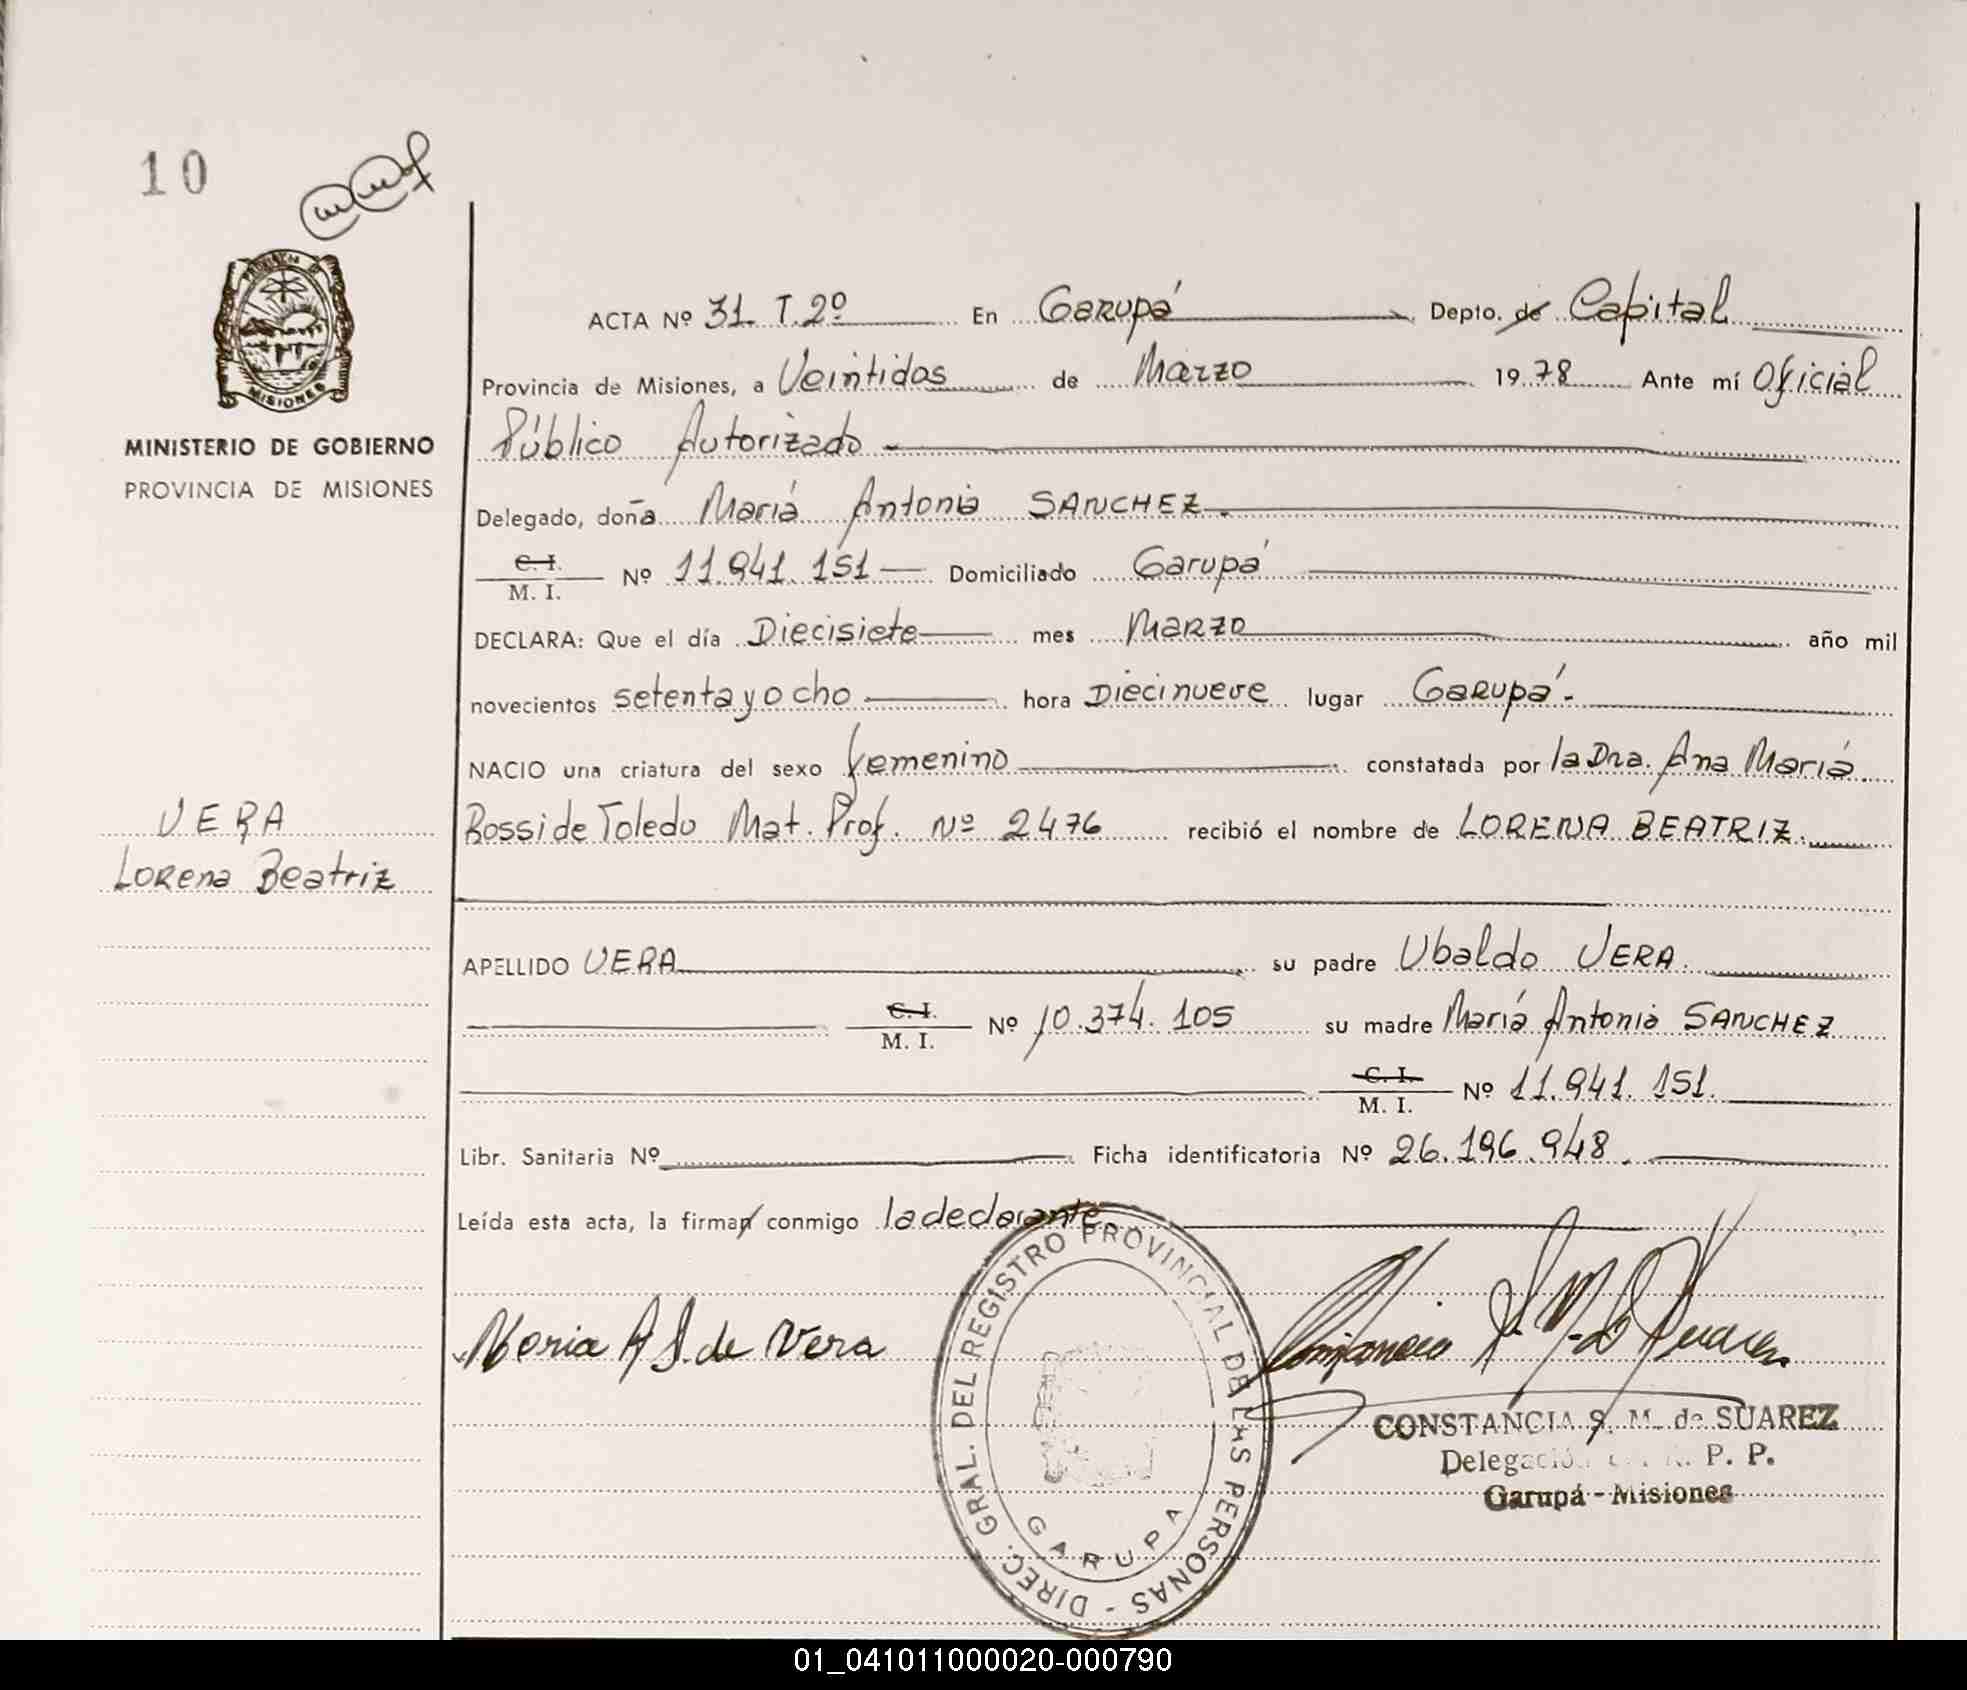 10
PROVINCIA DE
MISIONES
MINISTERIO DE GOBIERNO
PROVINCIA DE MISIONES
ACTA Nº 31 T.2º En Garupá Depto. de Capital
Provincia de Misiones, a Veintidos de Marzo 1978 Ante mí Oficial
Público Autorizado
Delegado, doña María Antonia SANCHEZ.
C. I. / M. I. Nº 11.941.151 Domiciliado Garupá
DECLARA: Que el día Diecisiete mes Marzo año mil
novecientos setenta y ocho hora Diecinueve lugar Garupá.
NACIO una criatura del sexo femenino constatada por la Dra. Ana María
VERA
Bossi de Toledo Mat. Prof. Nº 2476 recibió el nombre de LORENA BEATRIZ.
Lorena Beatriz
APELLIDO VERA su padre Ubaldo VERA.
C. I. / M. I. Nº 10.374.105 su madre María Antonia SANCHEZ
C. I. / M. I. Nº 11.941.151.
Libr. Sanitaria Nº Ficha identificatoria Nº 26.196.948.
Leída esta acta, la firman conmigo la declarante
Maria A S. de Vera
DIREC. GRAL. DEL REGISTRO PROVINCIAL DE LAS PERSONAS -
GARUPA
CONSTANCIA S. M. de SUAREZ
Delegación P. P.
Garupá - Misiones
01_041011000020-000790